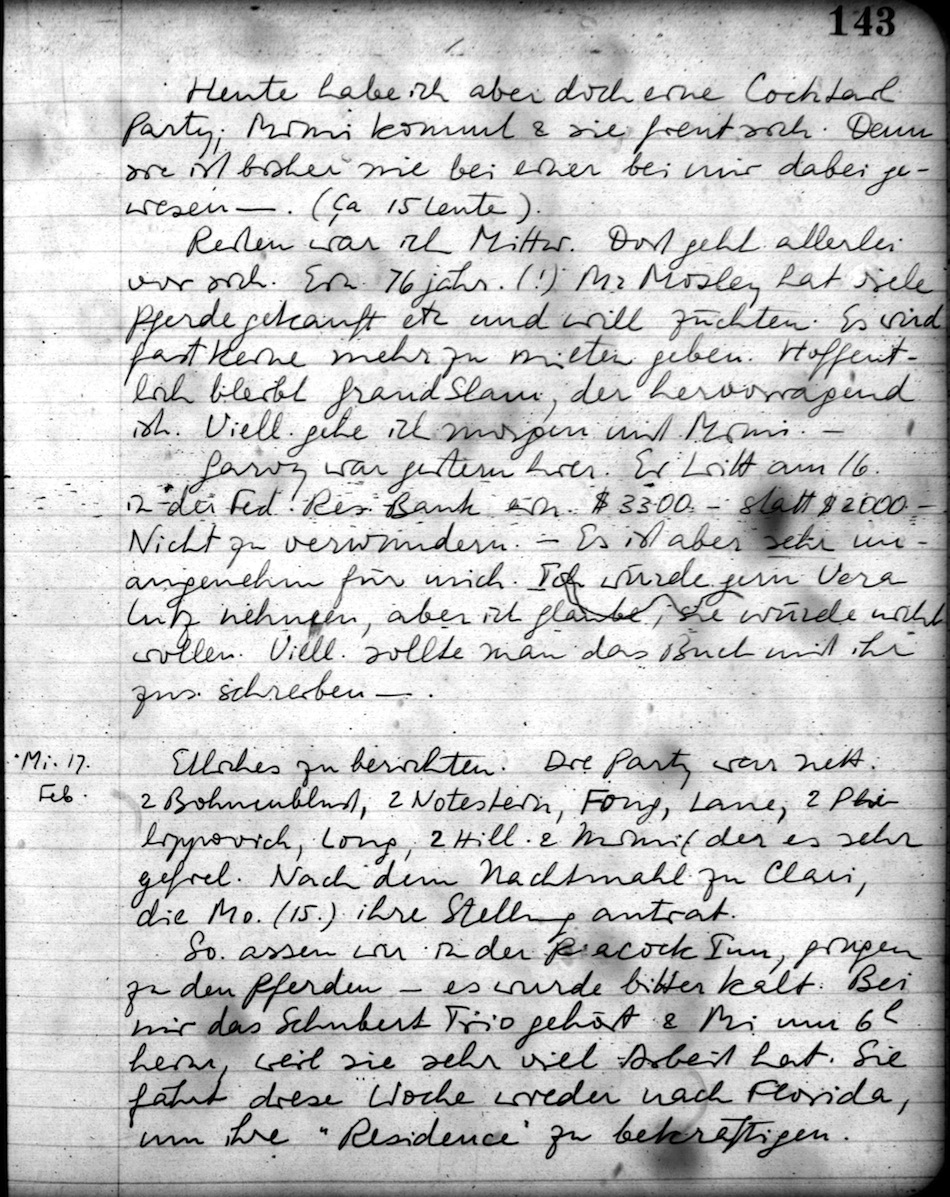 143
Heute habe ich aber doch eine Cocktail
Party; Mimi kommt & sie freut sich. Denn
sie ist bisher nie bei einer bei mir dabei ge-
wesen —. (Ça 15 Leute).
Reiten war ich Mittw. Dort geht allerlei
vor sich. Ein 76 jähr. (!) Mr Mosley hat viele
Pferde gekauft etc und will züchten. Es wird
fast keine mehr zu mieten geben. Hoffent-
lich bleibt Grand Slam, der hervorragend
ist. Viell. gehe ich morgen mit Mimi. —
war gestern hier. Er tritt am 16.
in der Fed. Res. Bank ein. $ 3300.– statt $ 2000.–
Nicht zu verwundern. – Es ist aber sehr un-
angenehm für mich. Ich würde gern Vera
Lutz nehmen, aber ich glaube, sie würde nicht
wollen. Viell. sollte man das Buch mit ihr
zus. schreiben —.
Mi. 17. Etliches zu berichten. Die Party war nett.
Feb. 2 Bohnenblust, 2 Notestein, Fong, Lane, 2 Phi-
lippovich, Long, 2 Hill & Mimi, der es sehr
gefiel. Nach dem Nachtmahl zu Clari,
die Mo. (15.) ihre Stellung antrat.
So. assen wir in der Peacock Inn, gingen
zu den Pferden – es wurde bitter kalt. Bei
mir das Schubert Trio gehört & Mi um 6h
heim, weil sie sehr viel Arbeit hat. Sie
fährt diese Woche wieder nach Florida,
um ihre "Residence" zu bekräftigen.